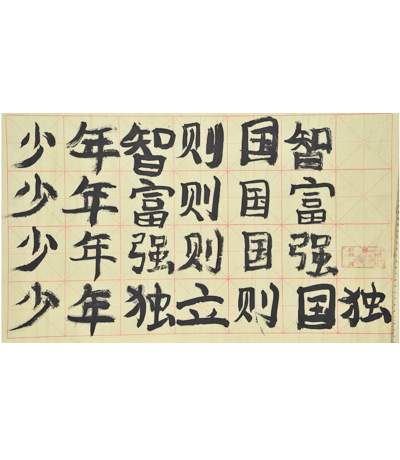 少年智则国智
少年富则国富
少年强则国强
少年独立则国独